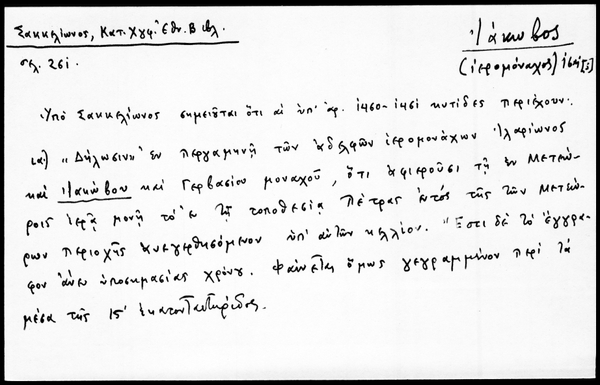 Σακκελίωνος, Κατ. Χγφ. Ἐθν. Βιβλ.
σελ. 261.
Ἰάκωβος
(ἱερομόναχος)
Ὑπὸ Σακκελίωνος σημειοῦται ὅτι αἱ ὑπ' ἀρ. 1450-1451 κυτίδες περιέχουν:
1α) "Δήλωσιν" ἐν περγαμηνῇ τῶν ἀδελφῶν ἱερομονάχων Ἱλαρίωνος
καὶ Ἰακώβου καὶ Γερβασίου μοναχοῦ, ὅτι ἀφιεροῦσι τῇ ἐν Μετεώ-
ροις ἱερᾷ μονῇ τὸ ἐν τῇ τοποθεσίᾳ Πέτρας ἐντὸς τῆς τῶν Μετεώ-
ρων περιοχῆς ἀνεγερθησόμενον ὑπ' αὐτῶν κελλίον. "Ἔστι δὲ τὸ ἔγγρα-
φον ἄνευ ὑποσημασίας χρόνου. Φαίνεται ὅμως γεγραμμένον περὶ τὰ
μέσα τῆς 15' ἑκατονταετηρίδος.